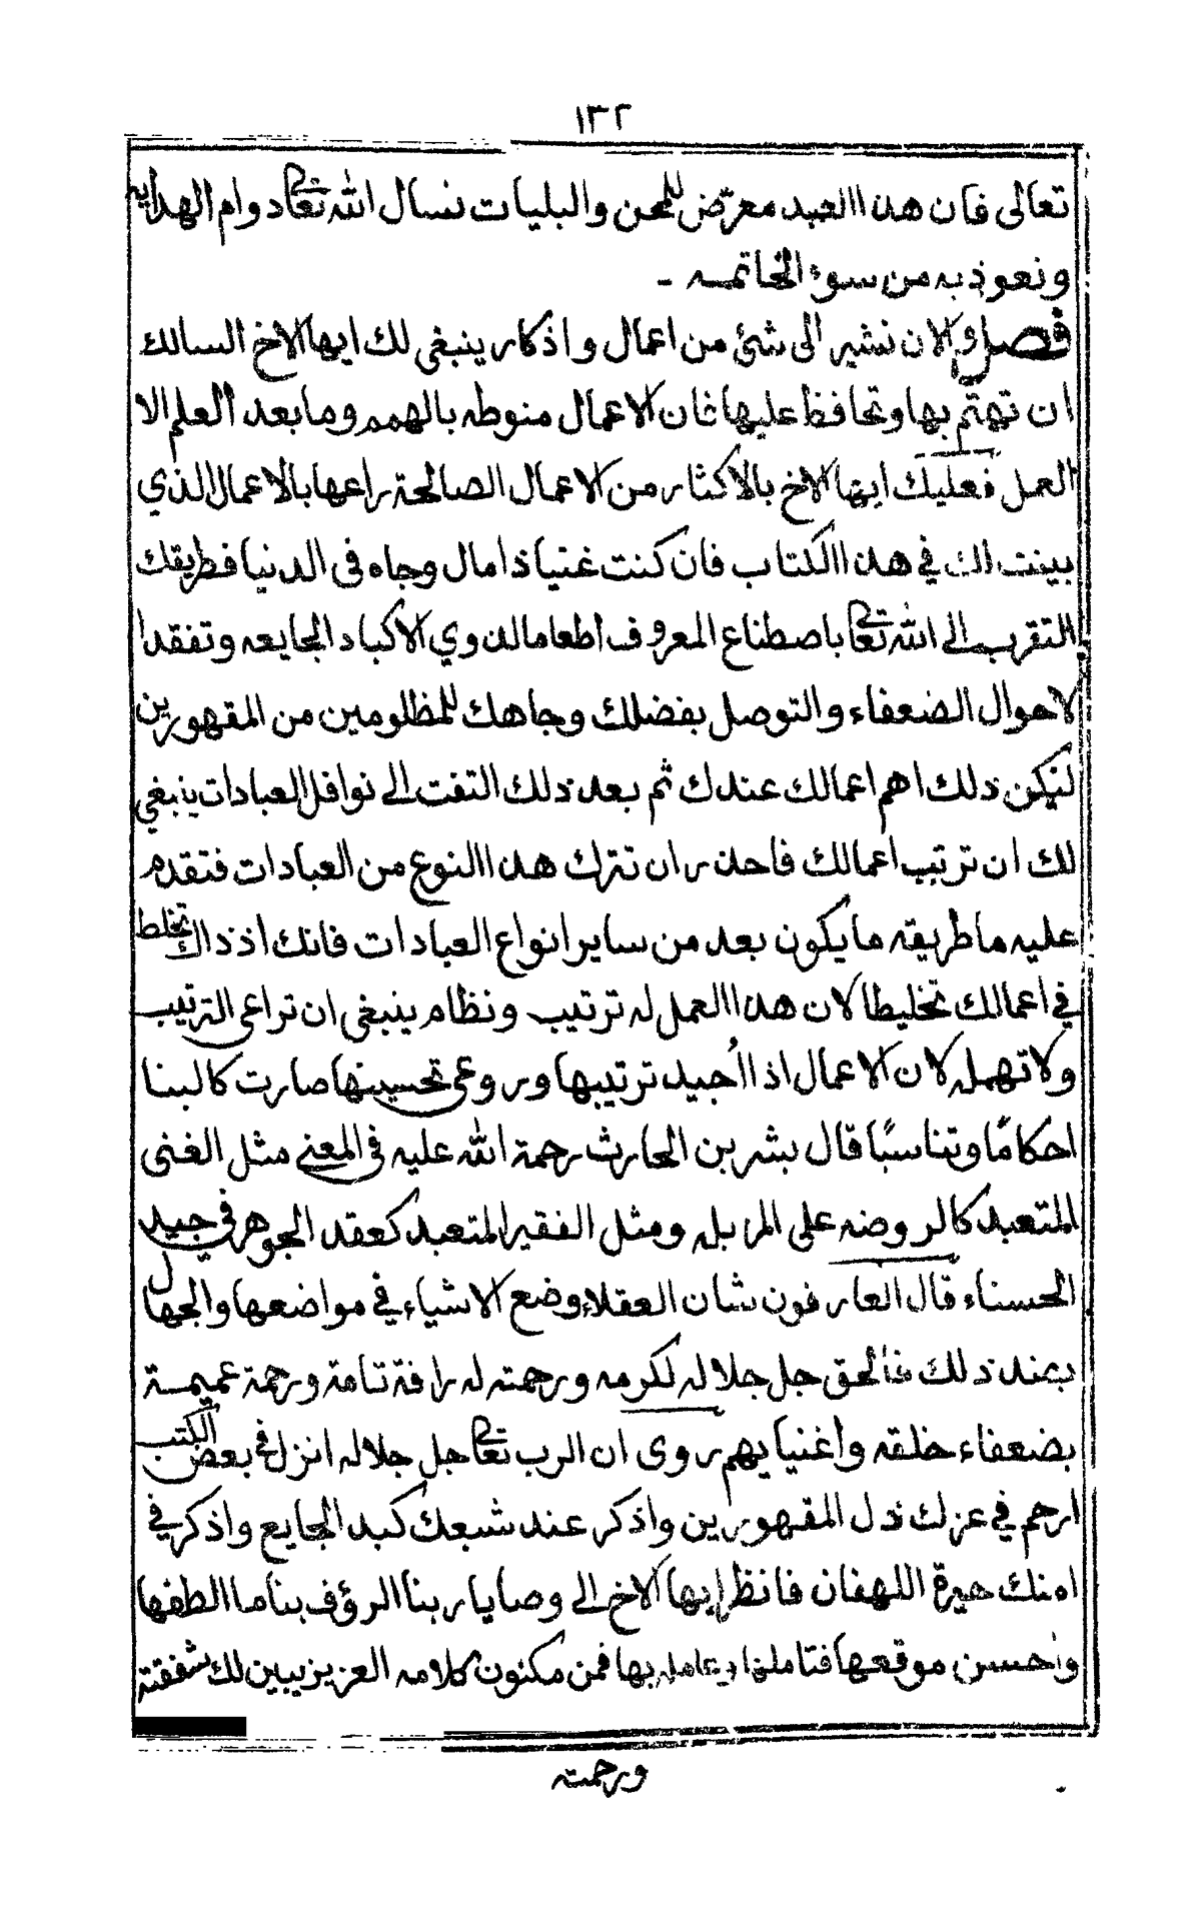 ١٣٢
تعالى فان هذا العبد معرّض للمحن والبليات نسال الله تعالى دوام الهدايه
ونعوذ به من سوء الخاتمه -
فصل والان نشير الى شئ من اعمال واذكار ينبغي لك ايها الاخ السالك
ان تهتم بها وتحافظ عليها فان الاعمال منوطه بالهمم وما بعد العلم الا
العمل فعليك ايها الاخ بالاكثار من الاعمال الصالحة راعها بالاعمال الذي
بينت لك في هذا الكتاب فان كنت غنيا ذا مال وجاه فى الدنيا فطريقك
التقرب الى الله تعالى باصطناع المعروف اطعاما لذوي الاكباد الجايعه وتفقد ا
لاحوال الضعفاء والتوصل بفضلك وجاهك للمظلومين من المقهورين
لنيكن ذلك اهم اعمالك عندك ثم بعد ذلك التفت الى نوافل العبادات ينبغي
لك ان ترتيب اعمالك فاحذر ان تترك هذا النوع من العبادات فتقدم
عليه ما طريقه ما يكون بعد من ساير انواع العبادات فانك اذ ذاك تخلط
في اعمالك تخليطا لان هذا العمل له ترتيب ونظام ينبغي ان تراعى الترتيب
ولا تهمله لان الاعمال اذا اُجيد ترتيبها وروعى تحسينها صارت كالبنا
احكامًا وتناسبًا قال بشر بن الحارث رحمة الله عليه فى المعنى مثل الغنى
المتعبد كالروضه على المزبله ومثل الفقير المتعبد كعقد الجوهر في جيد
الحسناء قال العارفون شان العقلاء وضع الاشياء في مواضعها والجهال
بضد ذلك فالحق جل جلاله لكرمه ورحمته له رافة تامة ورحمة عميمة
بضعفاء خلقه واغنيايهم روى ان الرب تعالى جل جلاله انزل في بعض الكتب
ارحم في عزك ذل المقهورين واذكر عند شبعك كبد الجايع واذكر في
امنك حيرة اللهفان فانظر ايها الاخ الى وصايا ربنا الرؤف بنا ما الطفها
واحسن موقعها فتاملها بها فمن مكنون كلامه العزيز يبين لك شفقته
ورحمته